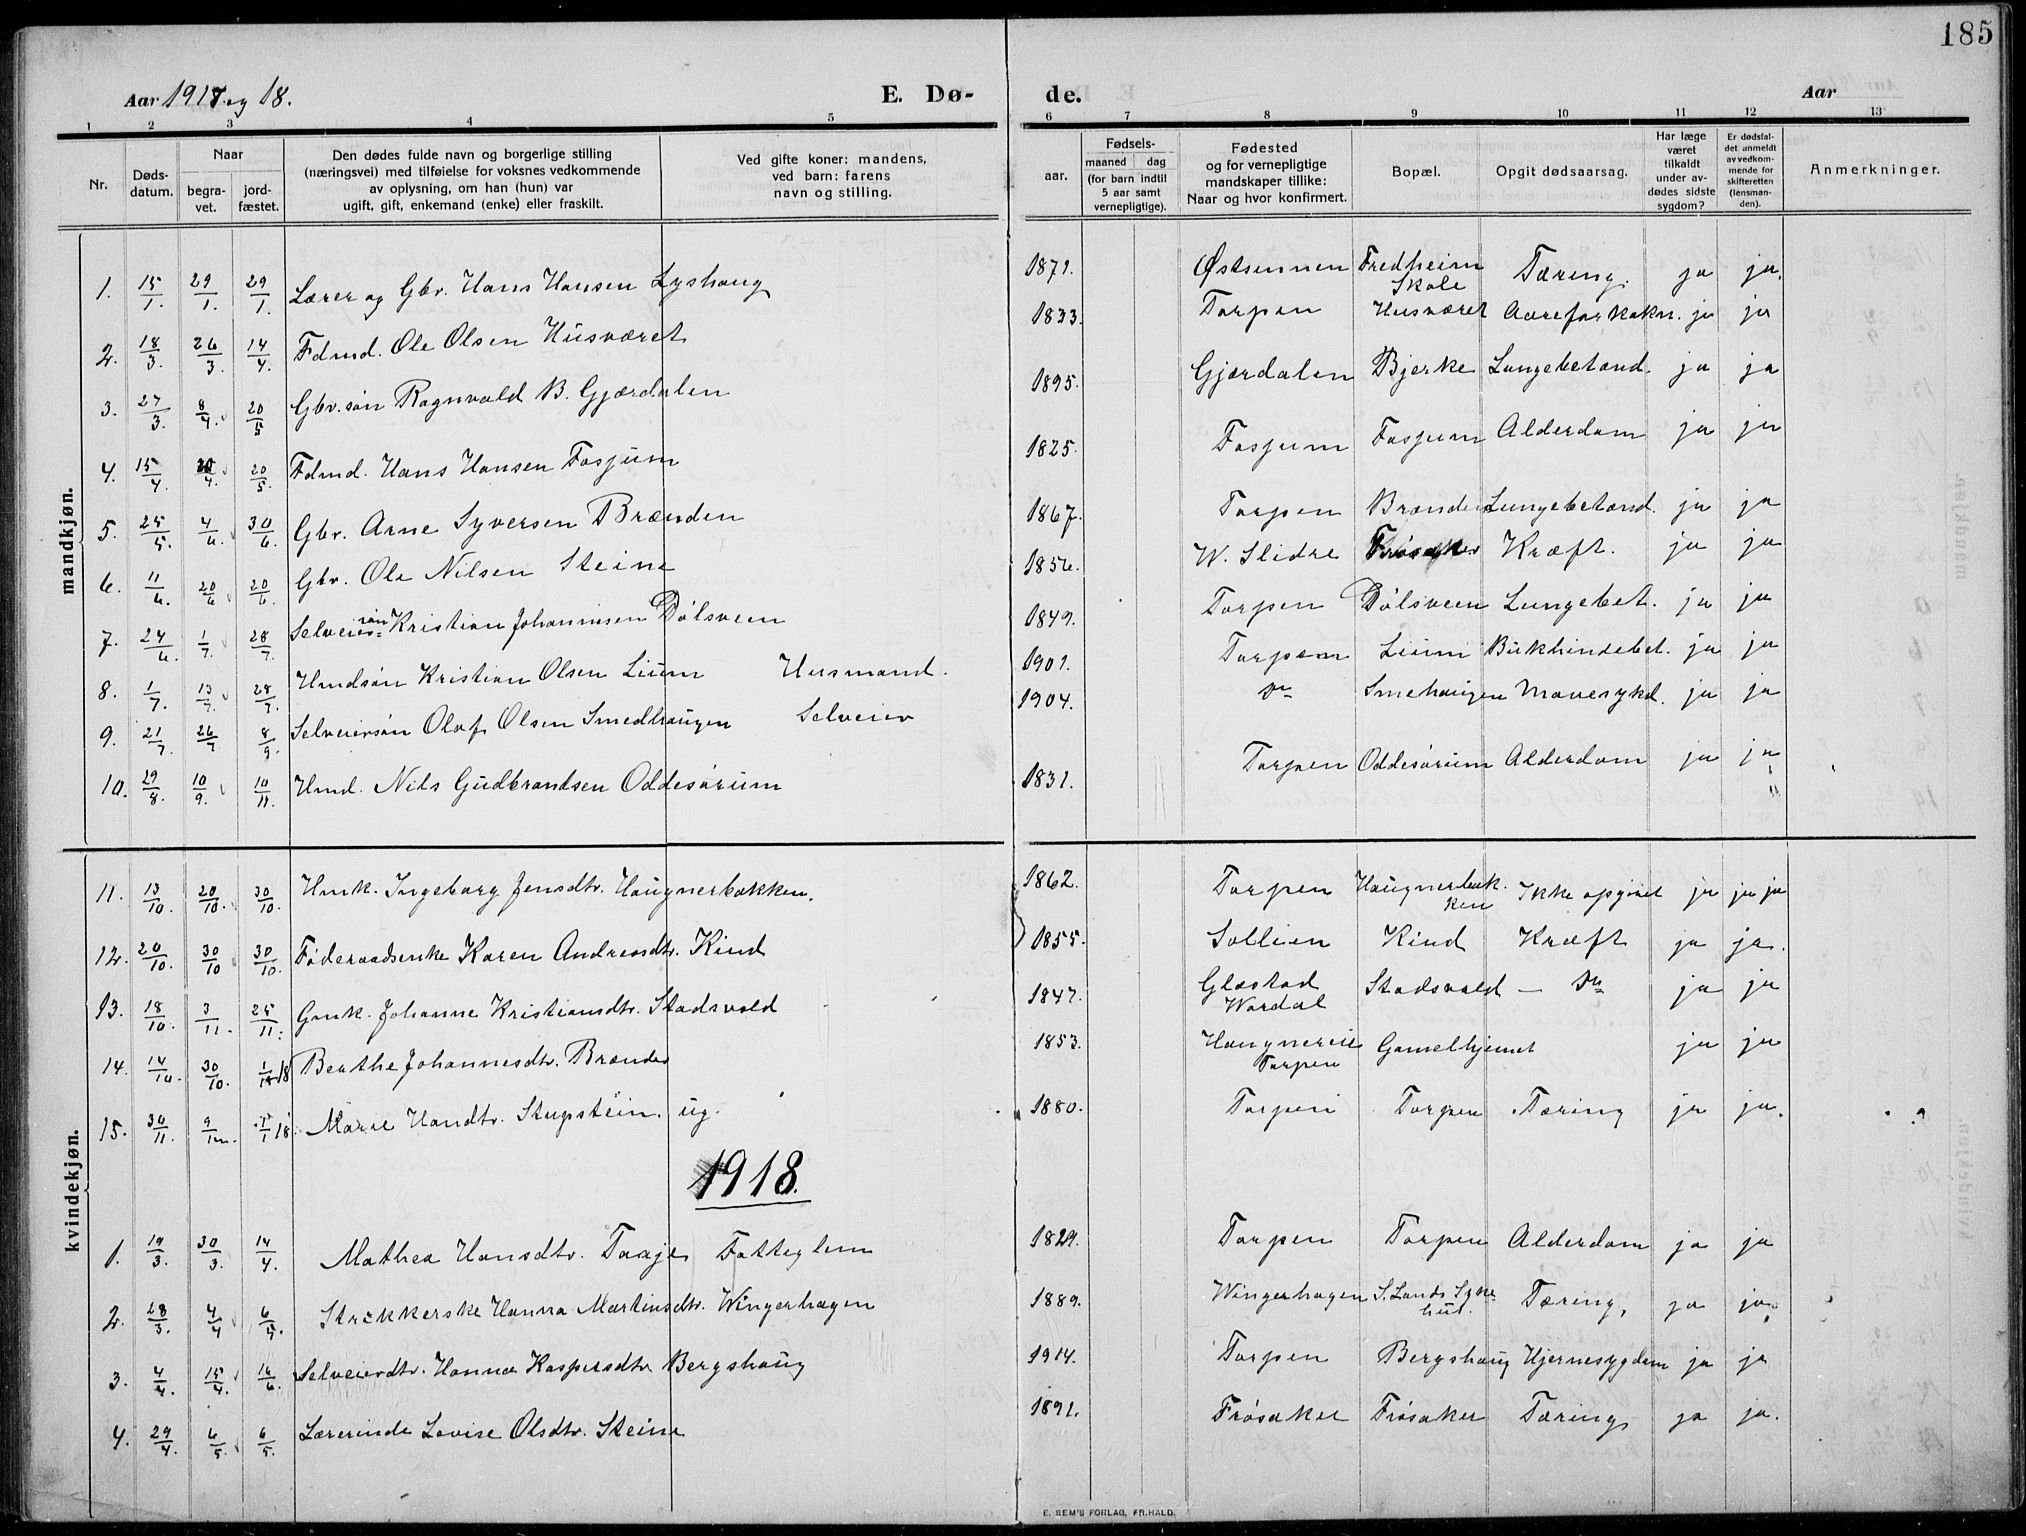 185
Aar 1917 og 18. E. Dø- de. Aar
1 2 3 4 5 6 7 8 9 10 11 12 13
Nr. Døds-datum. Naar begra-vet. jord-fæstet. Den dødes fulde navn og borgerlige stilling (næringsvei) med tilføielse for voksnes vedkommende av oplysning, om han (hun) var ugift, gift, enkemand (enke) eller fraskilt. Ved gifte koner: mandens, ved barn: farens navn og stilling. aar. Fødsels- maaned dag (for barn indtil 5 aar samt vernepligtige). Fødested og for vernepligtige mandskaper tillike: Naar og hvor konfirmert. Bopæl. Opgit dødsaarsag. Har læge været tilkaldt under av-dødes sidste sygdom? Er dødsfal-det anmeldt av vedkom-mende for skifteretten (lensman-den). Anmerkninger.
mandkjøn.
1. 15/1. 29/1. 29/1. Lærer og Gbr. Hans Hansen Lyshaug 1871. Østsinnen Fredheim Skole Tæring. ja ja.
2. 18/3. 26/3. 14/4. Fdmd. Ole Olsen Husværet 1833. Torpen Husværet Aareforkalkn. ja ja
3. 27/3. 8/4. 20/5 Gbr.søn Ragnvald B. Gjærdalen 1895. Gjærdalen Bjerke Lungebetænd. ja ja
4. 15/4. 20/4. 20/5. Fdmd. Hans Hansen Fosjum 1825. Fosjum Fosjum Alderdom ja ja
5. 25/5. 4/6. 30/6. Gbr. Arne Syversen Brænden 1867. Torpen Brænden Lungebetænd. ja ja
6. 11/6. 20/6 20/6. Gbr. Ole Nilsen Steine 1856. W. Slidre Frøsaker Kræft. ja ja
7. 24/6. 1/7. 28/7. Selveiersøn Kristian Johannesen Dølsveen 1849. Torpen Dølsveen Lungebet. ja ja
8. 1/7. 13/7. 28/7. Hmdsøn Kristian Olsen Lium Husmand. 1901. Torpen Lium Bukhindebet. ja ja
9. 21/7. 26/7 8/9. Selveiersøn Olaf Olsen Smedhaugen Selveier 1904. Smehaugen Mavesykd. ja ja
10. 29/8. 10/9. 10/11. Hmd. Nils Gudbrandsen Oddesørum 1831. Torpen Oddesørum Alderdom ja ja
kvindekjøn.
11. 13/10. 20/10. 30/10. Hmk. Ingeborg Jensdtr. Haugnerbakken. 1862. Torpen Haugnerbak-ken Ikke opgivet ja ja ja
12. 20/10. 30/10 30/10. Føderaadsenke Karen Andreasdtr. Kind 1855. Sollien Kind Kræft ja ja.
13. 18/10. 3/11. 25/11. Gmk. Johanne Kristiansdtr. Stadsvold 1847. Glæstad Wardal Stadsvold — ja ja
14. 14/10. 30/10. 1/1 18 Berthe Johannesdtr. Brænden 1853. Haugnereie Torpen Gamelhjemet ja ja
15. 30/11. 9/12. 1/1 18. Marie Hansdtr. Stupstein. ug. 1880. Torpen Torpen Tæring ja ja.
1918.
1. 19/3. 30/3. 14/4. Mathea Hansdtr. Taaje Fattiglem 1829. Torpen Torpen Alderdom ja ja
2. 28/3. 4/4 6/5. Strikkerske Hanna Martinsdtr. Wingerhagen 1889. Wingerhagen S. Lands Syke-hus. Tæring, ja ja.
3. 4/4. 15/4. 16/6. Selveierdtr. Hanna Kaspersdtr Bergshaug 1914. Torpen Bergshaug Hjernesygdom ja ja
4. 29/4. 6/5 6/5. Lærerinde Lovise Olsdtr. Steine 1891. Frøsaker Frøsaker Tæring ja ja.
E. SEM'S FORLAG, FR.HALD.